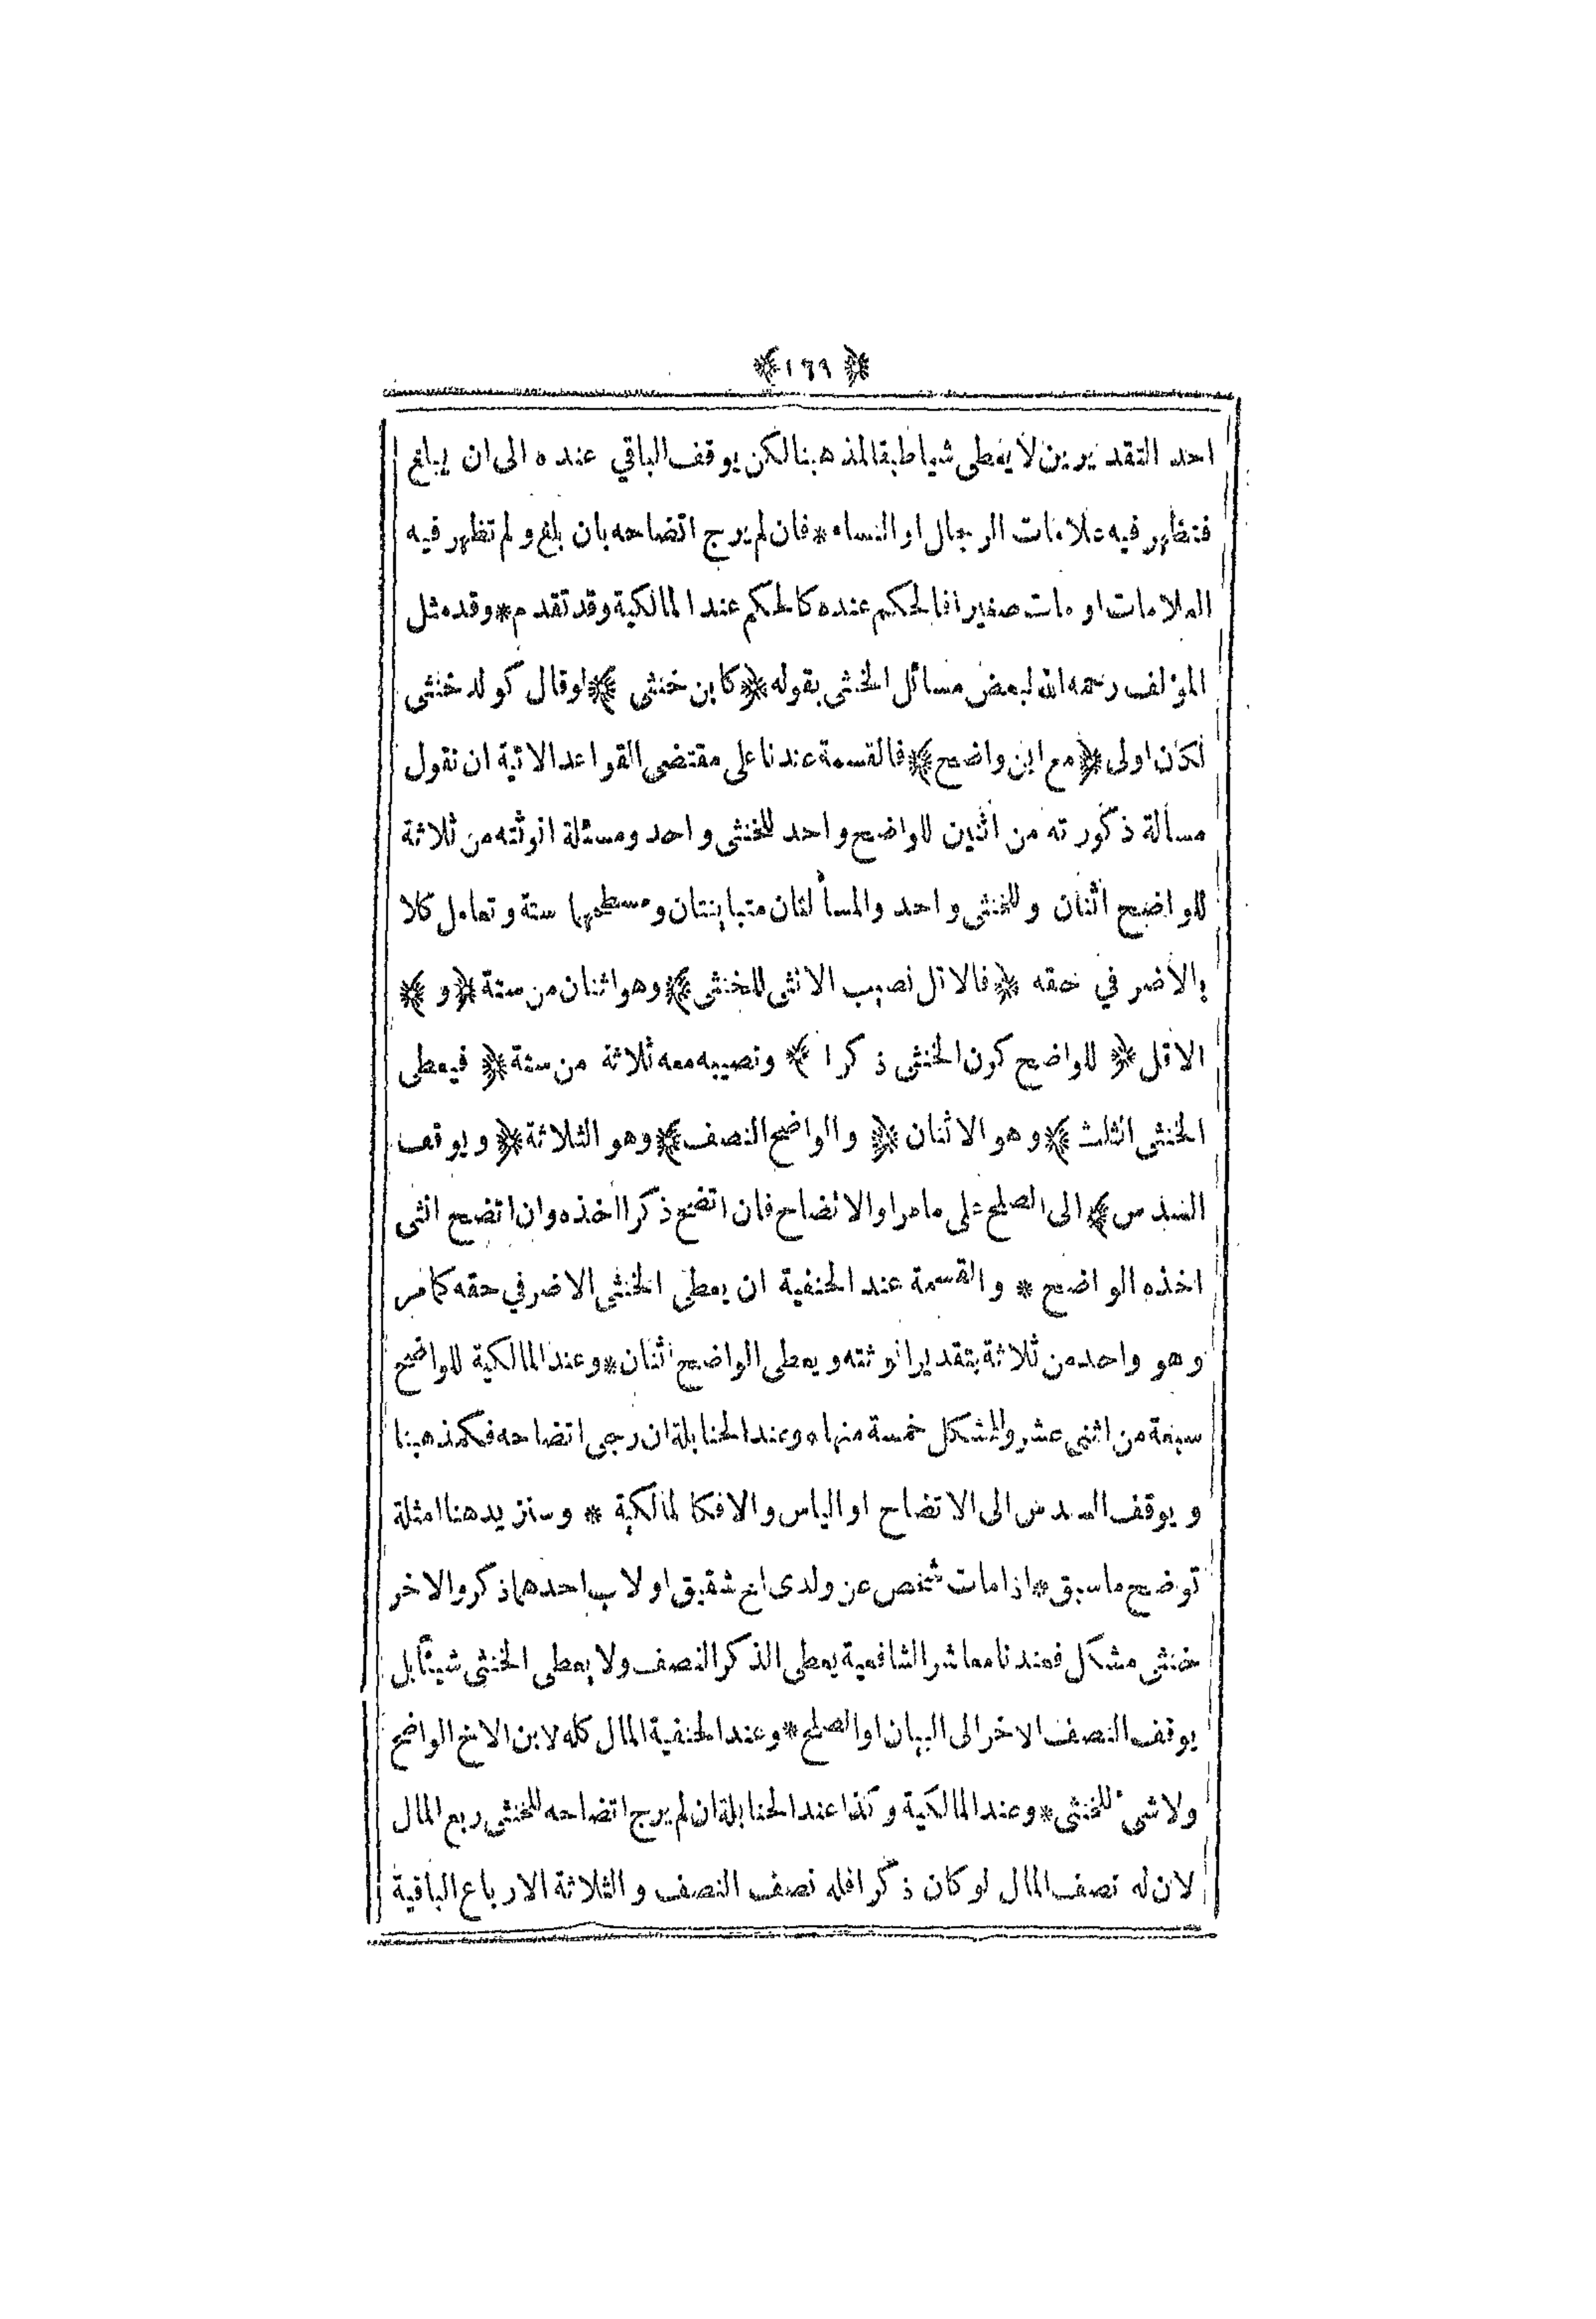 ﴿١٦٩﴾
احد التقديرين لا يعطى شيا طبقا لمذهبنا لكن يوقف الباقي عنده الى ان يبلغ
فتظهر فيه علامات الرجال او النساء * فان لم يرج اتضاحه بان بلغ ولم تظهر فيه
العلامات او مات صغيرا فالحكم عنده كالحكم عند المالكية وقد تقدم * وقد مثل
المؤلف رحمه الله لبعض مسائل الخنثى بقوله ﴿ كابن خنثى ﴾ لو قال كولد خنثى
لكان اولى ﴿ مع ابن واضح ﴾ فالقسمة عندنا على مقتضى القواعد الاتية ان نقول
مسألة ذكورته من اثنين للواضح واحد للخنثى واحد ومسئلة انوثته من ثلاثة
للواضح اثنان وللخنثى واحد والمسألتان متباينتان ومسطحهما ستة وتعامل كلا
بالاضر في حقه ﴿ فالاقل نصيب الانثى للخنثى ﴾ وهو اثنان من ستة ﴿ و ﴾
الاقل ﴿ للواضح كون الخنثى ذكرا ﴾ ونصيبه معه ثلاثة من ستة ﴿ فيعطى
الخنثى الثلث ﴾ وهو الاثنان ﴿ والواضح النصف ﴾ وهو الثلاثة ﴿ ويوقف
السدس ﴾ الى الصلح على ما مر او الاتضاح فان اتضح ذكرا اخذه وان اتضح انثى
اخذه الواضح * والقسمة عند الحنفية ان يعطى الخنثى الاضر في حقه كما مر
وهو واحد من ثلاثة بتقدير انوثته ويعطى الواضح اثنان * وعند المالكية للواضح
سبعة من اثنى عشر وللمشكل خمسة منها * وعند الحنابلة ان رجى اتضاحه فكمذهبنا
ويوقف السدس الى الاتضاح او الياس والا فكالمالكية * وسنزيد هنا امثلة
توضح ما سبق * اذا مات شخص عن ولدى اخ شقيق او لاب احدهما ذكر والاخر
خنثى مشكل فعندنا معاشر الشافعية يعطى الذكر النصف ولا يعطى الخنثى شيئا بل
يوقف النصف الاخر الى البيان او الصلح * وعند الحنفية المال كله لابن الاخ الواضح
ولا شئ للخنثى * وعند المالكية وكذا عند الحنابلة ان لم يرج اتضاحه للخنثى ربع المال
لان له نصف المال لو كان ذكرا فله نصف النصف والثلاثة الارباع الباقية